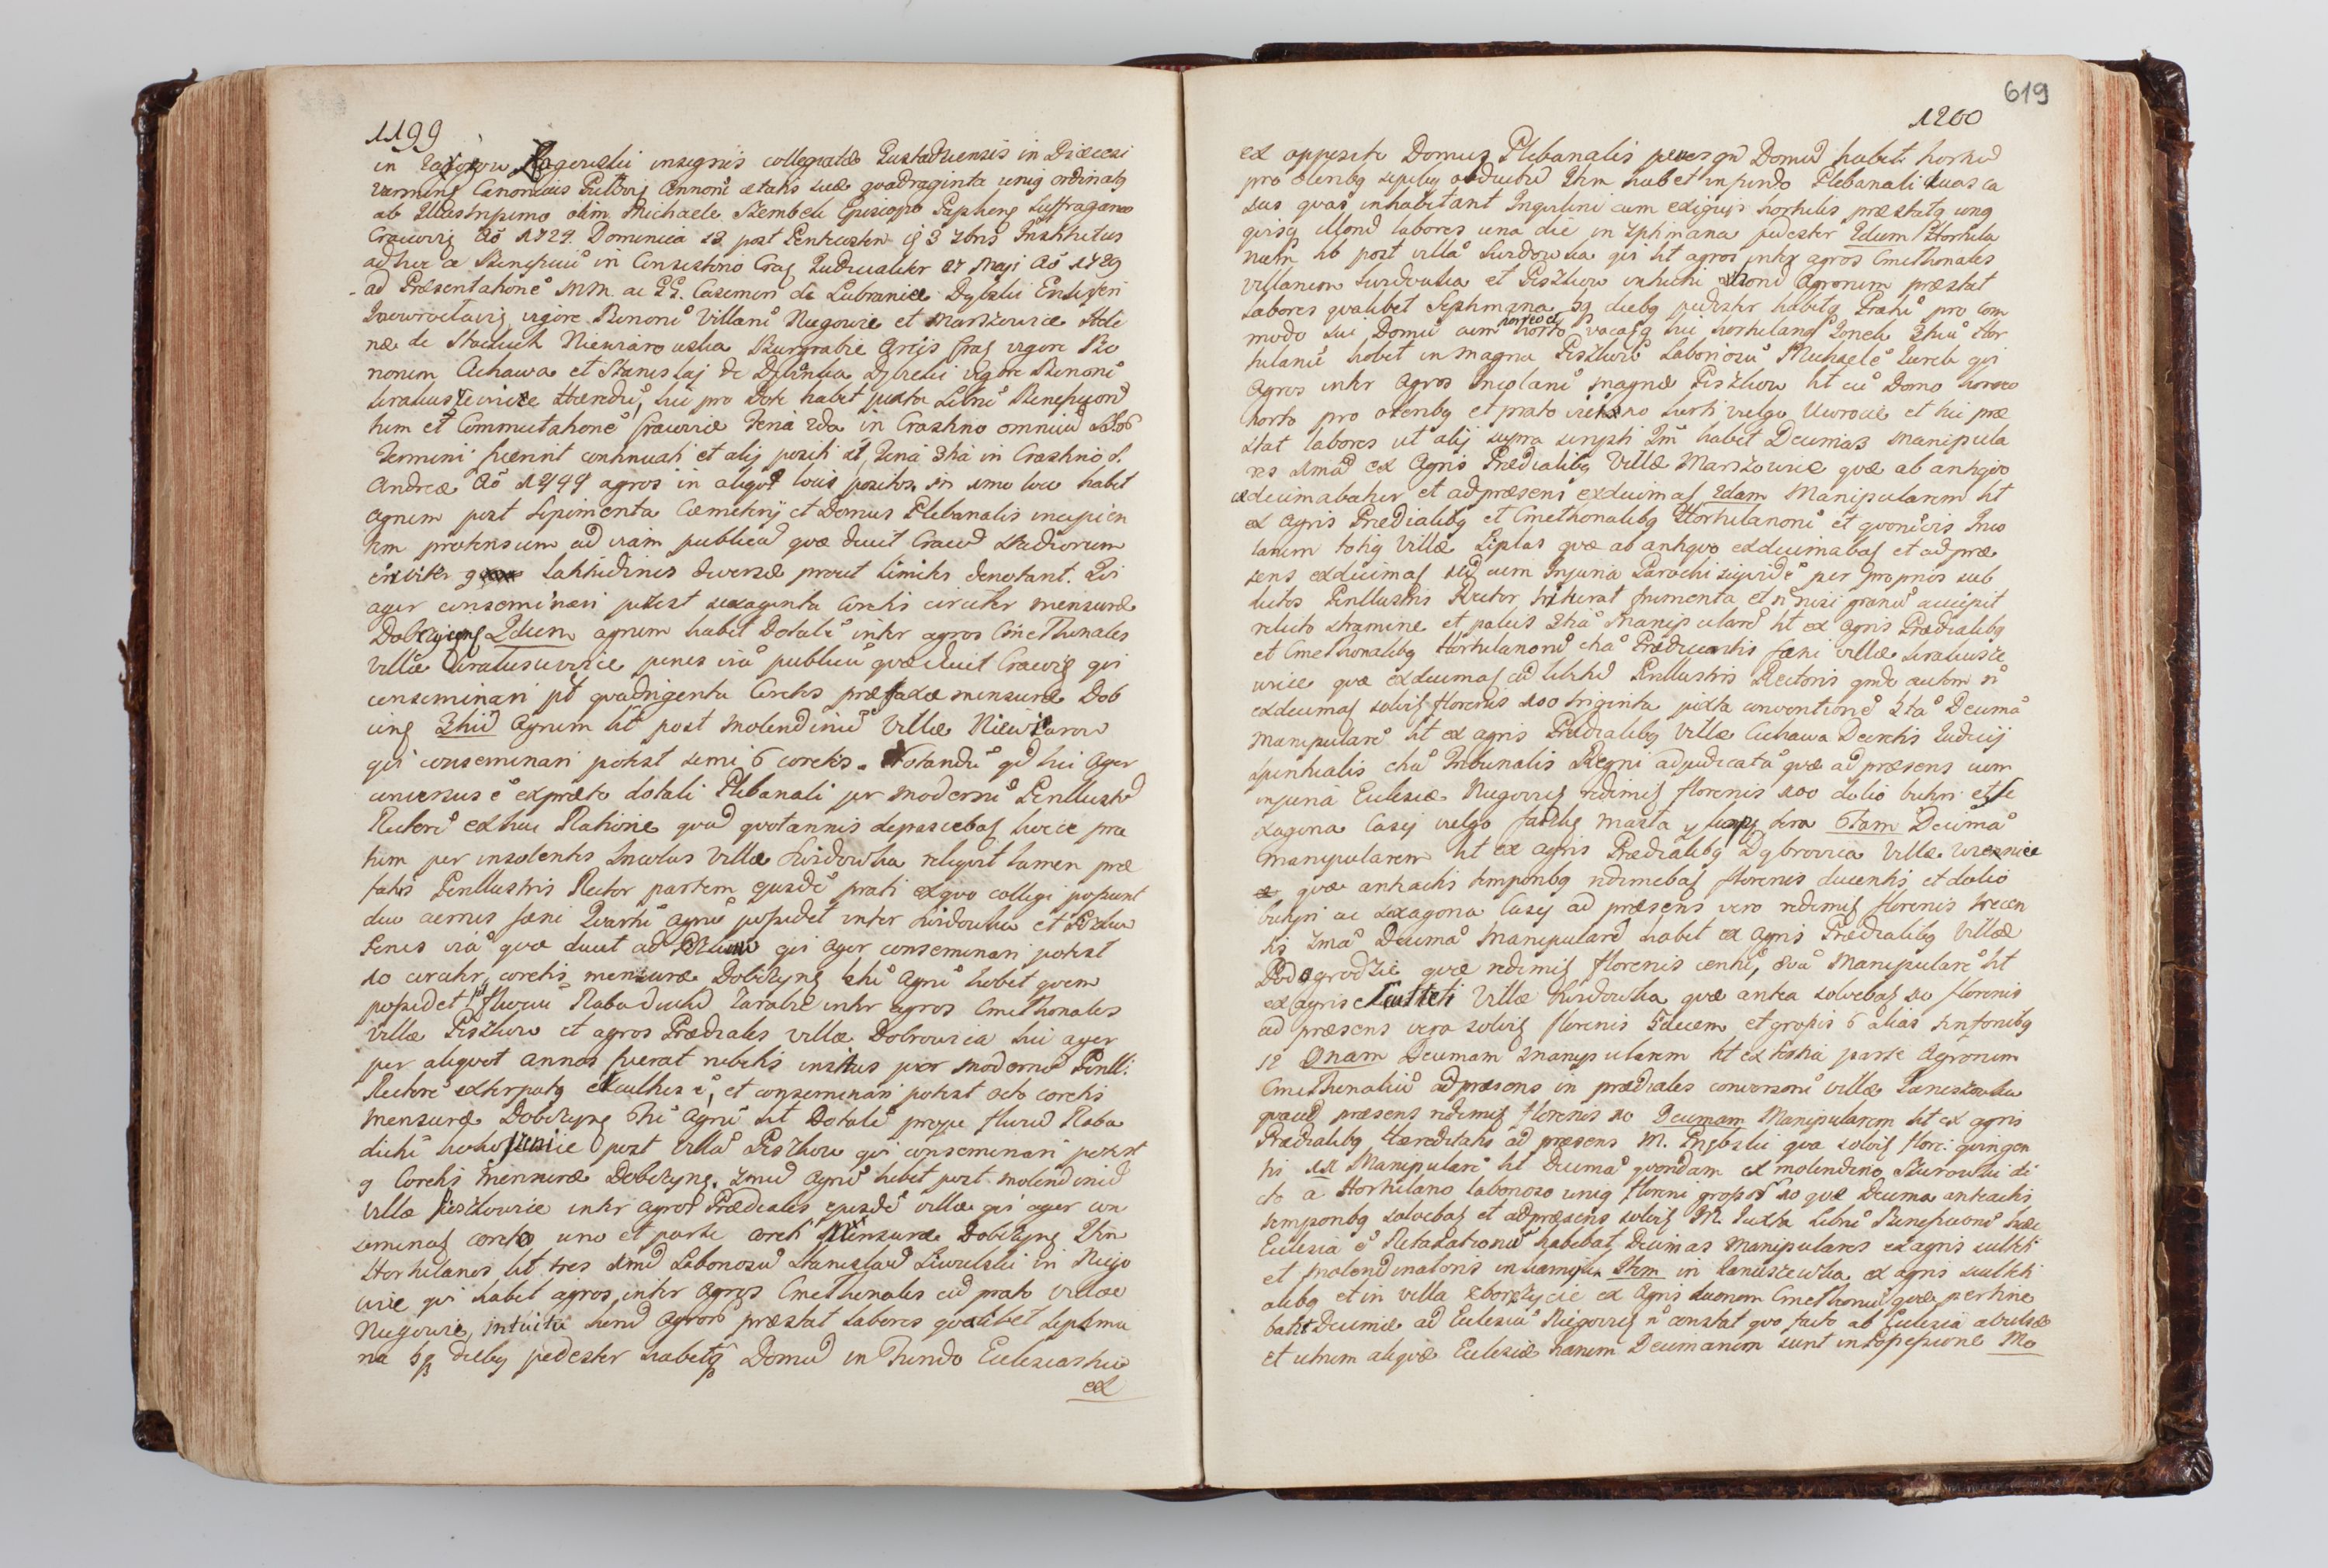 1199
in Zagorow Rogowski insignis collegiatæ Gustadtiensis in Diæcesi
varming Canonicus Pultovs annorū ætatis suæ quadraginta uniq ordinatq
ab Illustrissimo olim Michaele Szembek Episcopo Paphens Suffraganeo
Cracovis Aō 1724 Dominica 13 post Pentecosten 3 7bris Institutus
ad hoc Beneficiū in Consistorio Crac Judicialiter 27 Maji Aō 1729
ad Præsentationē MM. ac GG. Casimiri de Lubraniec Dąbski Ensiferi
Inowroclavis vigore Bonorū Villarū Niegowic et Marszowice Hele
næ de Stadnik Niewiarowska Burgrabie Arcis Crac vigore Bo
norum Cichawa et Stanislaj de Dąbrowka Dąbski vigore Bonorū
Krakuszowice Hæredū, hic pro Dote habet juxta Librū Beneficiorū
tum et Commutationē Cracoviæ Feria 2da in Crastino omniū SStorū
Termini fuerint continuati et alij positi st Feria 3tia in Crastino S.
Andreæ Aō 1444 agros in aliquot locis positos in imo loco habet
agrum post Sepimenta Cæmeterij et Domus Plebanalis incipien
tem protensum ad viam publicā quæ ducit Cracō stadiorum
circiter Latitudinis diversæ prout Limites denotant. Qui
ager conseminari potest sexaginta Coretis circiter mensuræ
Dobczycens 2dum agrum habet Dotalē inter agros Cmethonales
villæ Krakuszowice penes viā publicā quæ ducit Cracovis qui
conseminari pt quadriginta Coretis præfatæ mensuræ Dob
cens 3tiū Agrum ht post molendinū Villæ Niewiarow
qui conseminari potest semi 6 coretis. Notandū qd hic Ager
conversus ē ex prato dotali Plebanali per modernū Perillustrē
Rectorē ex hac Ratione quod quotannis depascebat hocce pra
tum per insolentes Incolas Villæ Liszkowka reliquit tamen præ
fatus Perillustris Rector partem ejusdē prati ex quo colligi possunt
duo acervus fæni Quartū agrū possidet inter et
Penes viā quæ ducit ad qui ager conseminari potest
10 circiter coretis mensuræ Dobczycens 5tū Agrū habet quem
possidet flexuū Raba dictū Zarabie inter agros Cmethonales
villæ Pierzchow et agros Prædiales villæ Dobrowica hic ager
per aliquot annos fuerat rubetis insitus per modernū Perill:
Rectorē exterpatq excultus ē, et conseminari potest octo coretis
mensuræ Dobczycens 6tū Agrū ht Dotalē prope fluviū Raba
dictū post Villā Pierzchow qui conseminari potest
9 Coretis mensuræ Dobczycens. 7mū Agrū habet post molendinū
villæ inter agros Prædiales ejusdē villæ qui ager con
seminat coreto uno et parte coreti Mensuræ Dobczycens Item
Hortulanos ht tres 1mū Laboriosū Stanislaū in Niego
wic qui habet agros inter agros Cmethonales cū prato villæ
Niegowic, intuitu horū Agrorū præstat Labores qualibet Septima
na bq diebq pedester habetq Domū in Fundo Ecclesiastico
ex
619
1200
ex opposito Domus Plebanalis penes qū Domū habet hortū
pro oleribq sepibq obductū Itm habet in fundo Plebanali duas ca
sas quas inhabitant Inquilini cum exiguis hortulis præstatq unq
quisq illorū labores una die in Sptimana pedester 2dum Hortula
num ht post villā Liszkowka qui ht agros inter agros Cmethonales
villarum et Pierzchow intuitu horū Agrorum præstat
labores qualibet Septimana bq diebq pedester habetq Pratū pro com
modo sui Domū cum horreo et horto, vocatq hic hortulanq 3tiū Hor
tulanū habet in magna Pierzchow Laboriosū Michaelē qui
Agros inter Agros Incolarū magnæ Pierzchow ht cū Domo horreo
horto pro oleribq et prato vulgo et hic præ
stat labores ut alij supra scripti Itm habet Decimas manipula
res 1mā ex Agris Prædialibq Villæ Marszowice quæ ab antiquo
exdecimabatur et ad præsens exdecimat 2dam Manipularem ht
ex agris Prædialibq et Cmethonalibq Hortulanorū et quorūvis Inco
larum totiq Villæ Liplas quæ ab antiquo exdecimabat et ad præ
sens exdecimat sed cum Injuria Parochi siquidē per proprios sub
ditos Perillustris Rector triturat frumenta et n̄ nisi granū accipit
relicto stramine et paleis 3tiā Manipularē ht ex Agris Prædialibq
et Cmethonalibq Hortulanorū etiā Præducentis fæni villæ Krakuszo
wice quæ exdecimat ad libitū Perillustris Rectoris qndo autem n̄
exdecimat solvit florenis 100 triginta juxta conventionē 4tā Decimā
Manipularē ht ex agris Prædialibq Villæ Cichawa Decretis Judicij
Spiritualis etiā Tribunalis Regni adjudicatā quæ ad præsens cum
injuria Ecclesiæ Niegovis redimit florenis 100 dolio butiri et se
xagena Casej vulgo faskę masła y kopę sera 6tam Decimā
manipularem ht ex agris Prædialibq Dąbrovica Villæ
quæ antiactis temporibq redimebat florenis ducentis et dolio
butyri ac sexagona Casej ad præsens vero redimit florenis trecen
tis 7mā Decimā Manipularē habet ex Agris Prædialibq Villæ
Podegrodzie quæ redimit florenis centū, 8vā Manipularē ht
ex agris Sculteti Villæ Liszkowka quæ antea solvebat 10 florenis
ad præsens vero solvit florenis 5decem et grossis 6 alias tinfonibq
12 9nam Decimam Manipularem ht ex tertia parte Agrorum
Cmethonaliū ad præsens in prædiales conversorū villæ Janiszowka
quæ ad præsens redimit florenis 10 Decimam Manipularem ht ex agris
Prædialibq Hæreditatis ad præsens M. quæ solvit flore: quingen
tis 11 Manipularē ht Decimā quondam ex molendino di
cto a Hortulano laborioso uniq floreni grossorū 10 quæ Decima antiactis
temporibq solvebat et ad præsens solvit IR. Juxta Librū Beneficiorū hæc
Ecclesia ē Retaxationū habebat Decimas manipulares ex agris sculteti
et Molendinatoris in Item in Janiszewka ex agris sculteti
alibq et in villa ex Agris duorum Cmethonū quæ pertine
bant Decimæ ad Ecclesiā Niegovis n̄ constat quo facto ab Ecclesia avulsæ
et utrum aliquæ Ecclesiæ harum Decimarum sunt in Possessione Mo